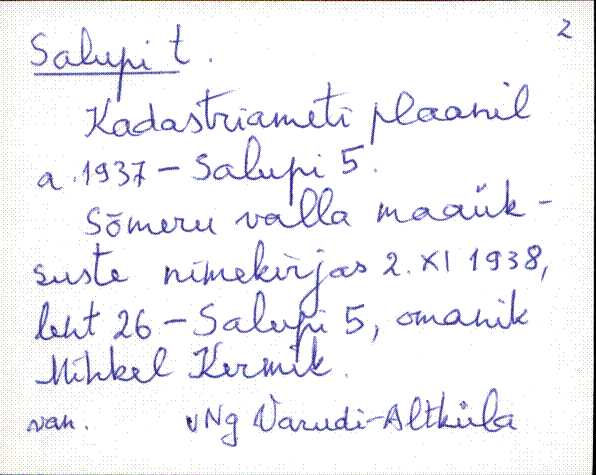 2
Salupi t.
Kadastriameti plaanil
a. 1937 – Salupi 5.
Sõmeru valla maaük-
suste nimekirjas 2. XI 1938,
leht 26 – Salupi 5, omanik
Mihkel Kermik.
van. vNg Varudi-Altküla